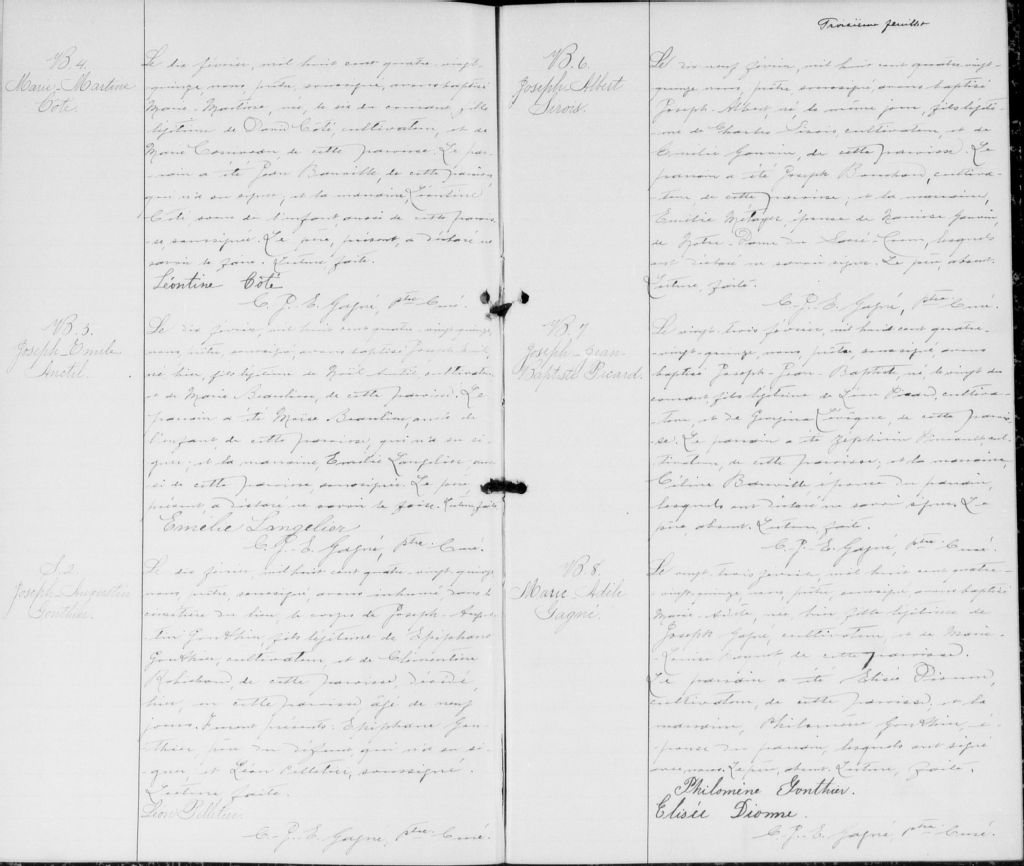 B. 4.
Marie-Martine
Côté.
Le dix février, mil huit cent quatre-vingt-
quinze nous, prêtre, soussigné, avons baptisé
Marie-Martine, née, le six du courant, fille
légitime de David Côté, cultivateur, et de
Marie Comveau de cette paroisse. Le par-
rain a été Jean Banville, de cette paroisse,
qui n'a su signer; et la marraine, Léontine
Côté soeur de l'enfant, aussi de cette parois-
se, soussignée. Le père, présent, a déclaré ne
savoir le faire. Lecture faite.
Léontine Côté
C. P. E. Gagné, ptre Curé.
B. 5.
Joseph-Emile
Anctil.
Le dix février, mil huit cent quatre-vingt-quinze,
nous, prêtre, soussigné, avons baptisé Joseph-Emile
né hier, fils légitime de Noël Anctil, cultivateur
et de Marie Beaulieu, de cette paroisse. Le
parrain a été Moïse Beaulieu, oncle de
l'enfant de cette paroisse, qui n'a su si-
gner; et la marraine, Emélie Langelier, aus-
si de cette paroisse, soussignée. Le père,
présent, a déclaré ne savoir le faire. Lecture faite
Emelie Langelier
C. P. E. Gagné, ptre Curé.
S. 2.
Joseph-Augustin
Gonthier.
Le dix février, mil huit cent quatre-vingt-quinze,
nous, prêtre, soussigné, avons inhumé, dans le
cimetière du lieu, le corps de Joseph-Augus-
tin Gonthier, fils légitime de Epiphane
Gonthier, cultivateur, et de Clémentine
Robichaud, de cette paroisse, décédé,
hier, en cette paroisse, âgé de neuf
jours. Furent présents: Epiphane Gon-
thier, père du défunt, qui n'a su si-
gner, et Léon Pelletier, soussigné.
Lecture faite.
Léon Pelletier
C. P. E. Gagné, ptre Curé.
Troisième feuillet
B. 6.
Joseph-Albert
Sirois.
Le dix neuf février, mil huit cent quatre vingt-
quinze nous, prêtre soussigné, avons baptisé
Joseph-Albert, né, le même jour, fils légiti-
me de Charles Sirois, cultivateur, et de
Emélie Gauvin, de cette paroisse. Le
parrain a été Joseph Bouchard, cultiva-
teur, de cette paroisse; et la marraine,
Emélie Métayer, épouse de Narcisse Gauvin,
de Notre-Dame du Sacré-Coeur, lesquels
ont déclaré ne savoir signer. Le père, absent.
Lecture, faite.
C. P. E. Gagné, ptre Curé.
B. 7
Joseph-Jean-
Baptiste Picard.
Le vingt-trois février, mil huit cent quatre-
vingt-quinze, nous, prêtre, soussigné, avons
baptisé Joseph-Jean-Baptiste, né le vingt du
courant, fils légitime de Léon Picard, cultiva-
teur, et de Georgina Lévêque, de cette parois-
se. Le parrain a été Zéphirin Pineault, cul-
tivateur, de cette paroisse; et la marraine,
Céline Banville, épouse du parrain,
lesquels ont déclaré ne savoir signer. Le
père, absent. Lecture faite.
C. P. E. Gagné, ptre Curé.
B. 8.
Marie Adèle
Gagné.
Le vingt-trois février, mil huit cent quatre-
vingt-quinze, nous, prêtre, soussigné, avons baptisé
Marie-Adèle, née, hier, fille légitime de
Joseph Gagné, cultivateur, et de Marie-
Louise, de cette paroisse.
Le parrain a été Elisée Dionne,
cultivateur, de cette paroisse, et la
marraine, Philomène Gonthier, é-
pouse du parrain, lesquels ont signé
avec nous. Le père, absent. Lecture, faite.
Philomène Gonthier.
Elisée Dionne.
C. P. E. Gagné, ptre Curé.